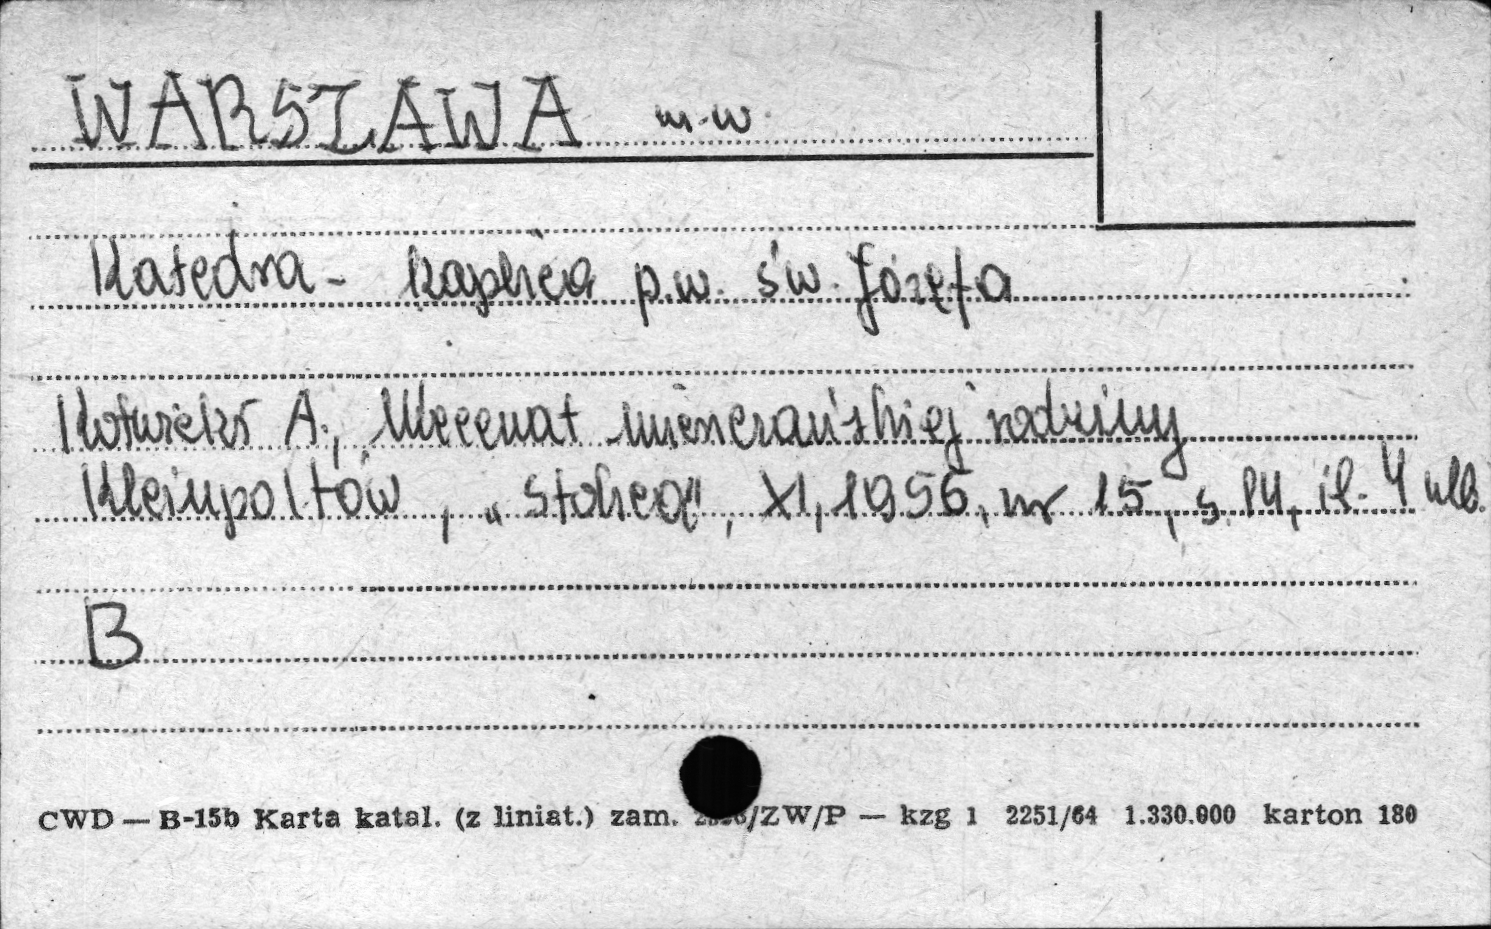 WARSZAWA m.w.
Katedra - kaplica p.w. św. Józefa
Kotwicki A., Mecenat mieszczańskiej rodziny
Kleinpoltów, „Stolica", XI, 1956, nr 15, s. 14, il. 4 nlb.
B
CWD — B-15b Karta katal. (z liniat.) zam. /ZW/P — kzg 1 2251/64 1.330.000 karton 180